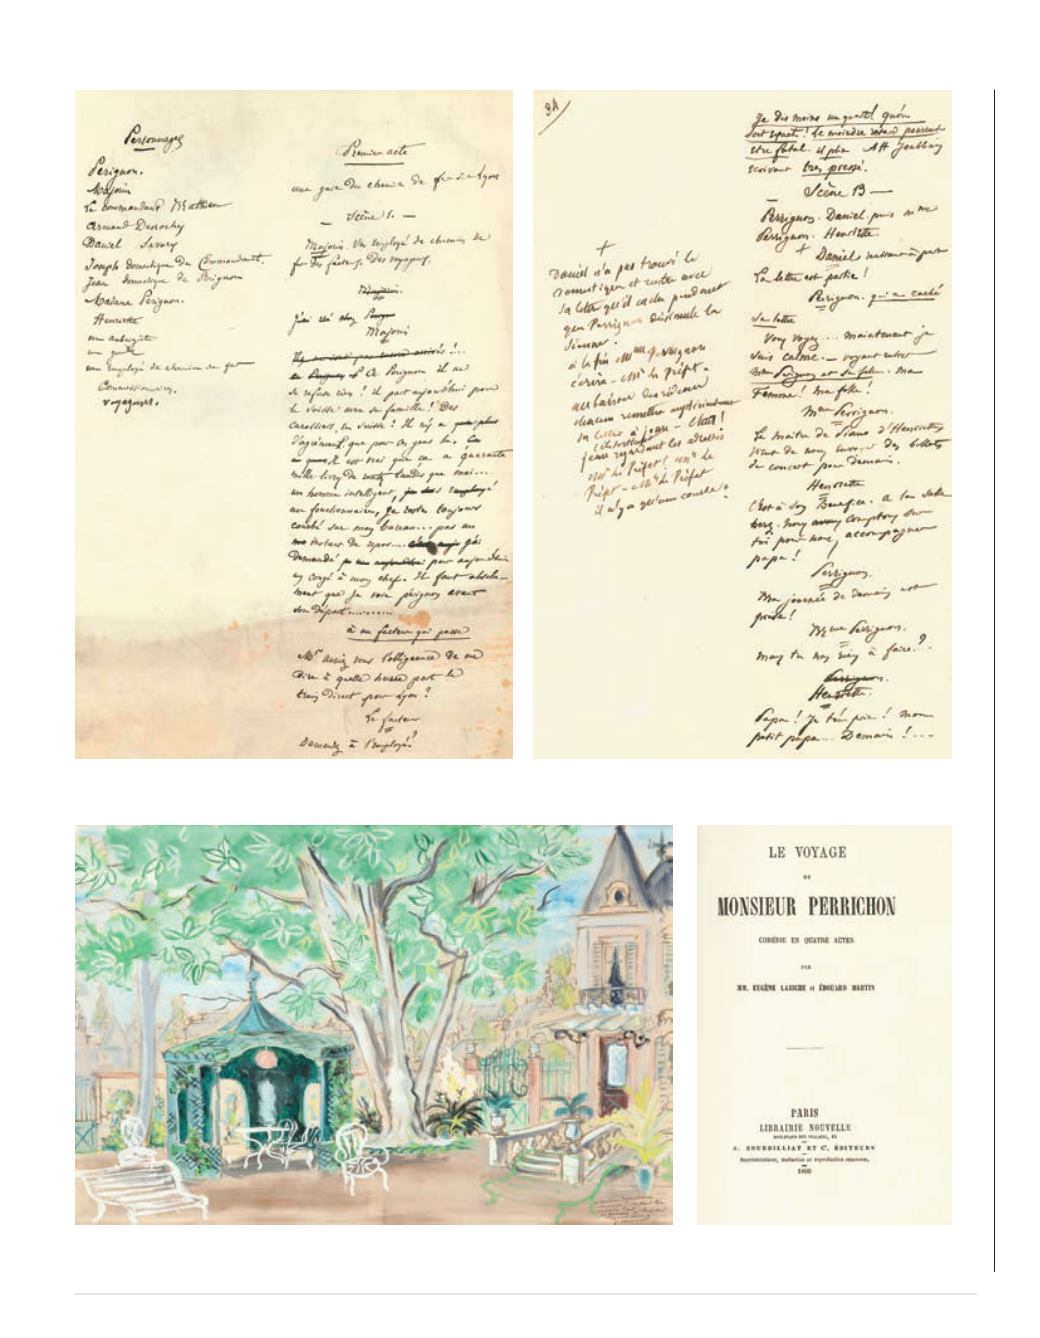 Personnages
Perignon.
Majorin
Le commandant Mathieu
Armand Desroches
Daniel Savary
Joseph domestique du Commandant.
Jean domestique de Perignon
Madame Perignon.
Henriette
un aubergiste
un guide
un Employé de chemin de fer
Commissionnaires,
voyageurs.
Premier acte
une gare du chemin de fer de Lyon
— Scène 1. —
Majorin. Un employé de chemin de
fer des facteurs. Des voyageurs.
Majorin.
j'ai été chez
Majorin
Ce Perignon il ne
se refuse rien ! il part aujourd'hui pour
la Suisse avec sa famille ! Des
carossiers, en Suisse ! Il n'y a plus
d'agrément que pour ces gens là.
Il est vrai que ça a quarante
mille livres de tandis que moi...
un homme intelligent,
un fonctionnaire, je reste toujours
courbé sur mon bureau... pas un
instant de repos... j'ai
demandé pour aujourd'hui
un congé à mon chef. Il faut absolu-
ment que je voie perignon avant
son départ............
à un facteur qui passe
Mr auriez vous l'obligeance de me
dire à quelle heure part le
train direct pour Lyon ?
Le facteur
Demandez à l'employé !
34
+
Daniel n'a pas trouvé le
domestique et rentre avec
sa lettre qu'il cache pendant
que Perrignon dissimule la
sienne.
à la fin Mme Perrignon
écrira — Mr le Préfet —
au baisser du rideau
chacun remettra mystérieusement
sa lettre à Jean — Chut !
Jean regardant les adresses
Mr le Préfet ! Mr le
Préfet — Mr le Préfet
il n'y a qu'une course !
Je dis moins un quart ! qu'on
soit exact ! Le moindre retard pourrait
être fatal. il plie Ah j'oubliais
écrivant très pressé.
Scène 13 —
Perrignon. Daniel. puis Mme
Perrignon. Henriette.
+ Daniel rentrant à part
La lettre est partie !
Perrignon. qui a caché
sa lettre
Vous voyez... maintenant je
suis calme. — voyant entrer
Mme Perrignon et sa fille. Ma
Femme ! Ma fille !
Mme Perrignon.
Le maître de Piano d'Henriette
vient de nous envoyer des billets
de concert pour demain.
Henriette
C'est à son Bénéfice. à la salle
herz. Nous comptons sur
toi pour nous accompagner
papa !
Perrignon.
Ma journée de demain est
prise !
Mme Perrignon.
mais tu n'as rien à faire ?..
Perrignon.
Henriette.
Papa ! Je t'en prie ! mon
petit papa... Demain ! ...
LE VOYAGE
DE
MONSIEUR PERRICHON
COMÉDIE EN QUATRE ACTES
PAR
MM. EUGÈNE LABICHE et ÉDOUARD MARTIN
PARIS
LIBRAIRIE NOUVELLE
BOULEVARD DES ITALIENS, 15
A. BOURDILLIAT ET Cᵉ, ÉDITEURS
Représentation, traduction et reproduction réservées.
1860